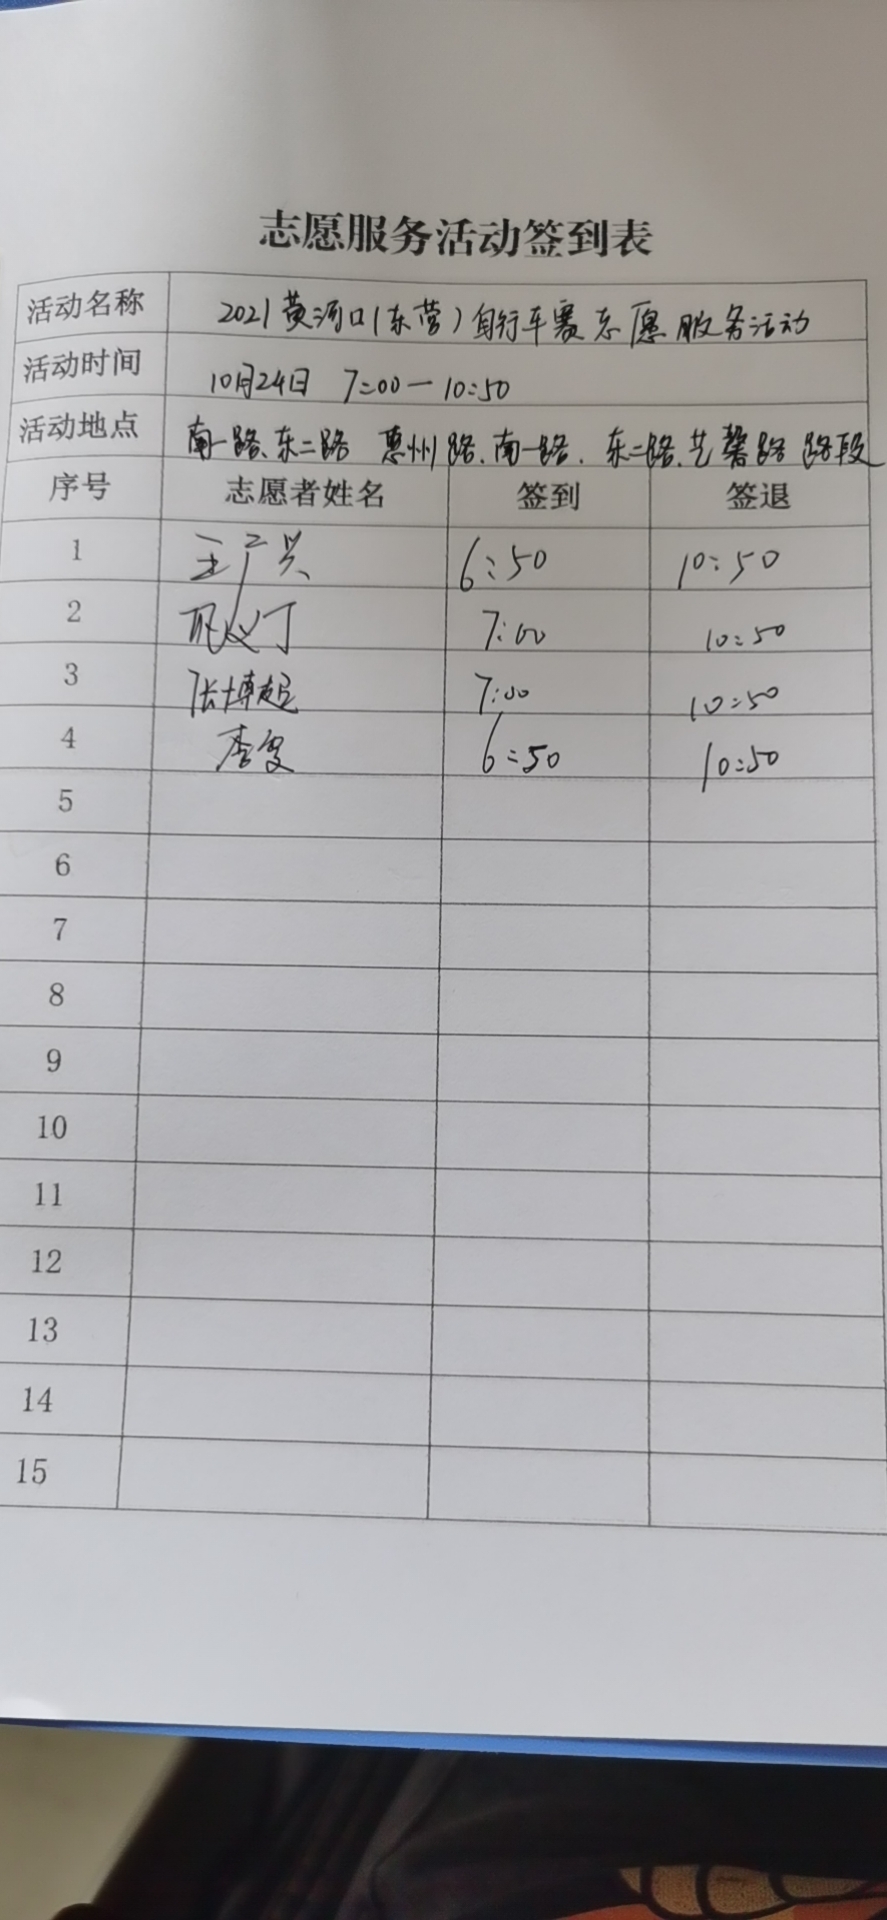 志愿服务活动签到表
活动名称 2021黄河口(东营)自行车赛志愿服务活动
活动时间 10月24日 7:00—10:50
活动地点 南一路、东二路 惠州路、南一路、东二路、艺馨路 路段
序号 志愿者姓名 签到 签退
1 王广兴 6:50 10:50
2 7:00 10:50
3 张博超 7:00 10:50
4 6:50 10:50
5
6
7
8
9
10
11
12
13
14
15